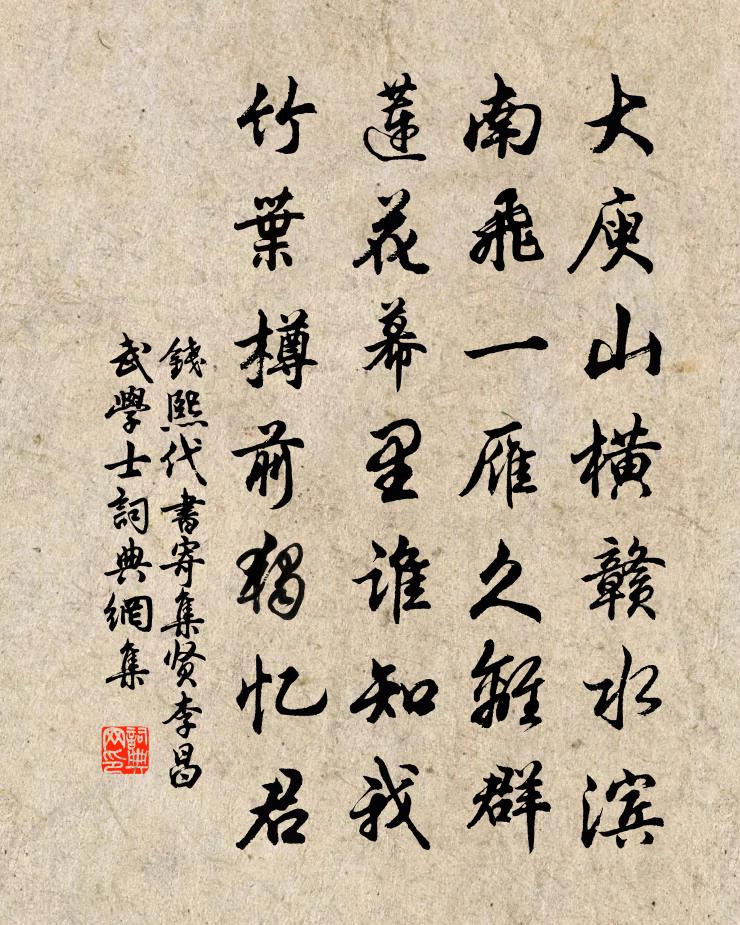 大庾山橫赣水滨
南飛一雁久離群
蓮花幕里谁知我
竹葉樽前獨忆君
錢熙代書寄集贤李昌
武學士詞典網集
詞典
网印